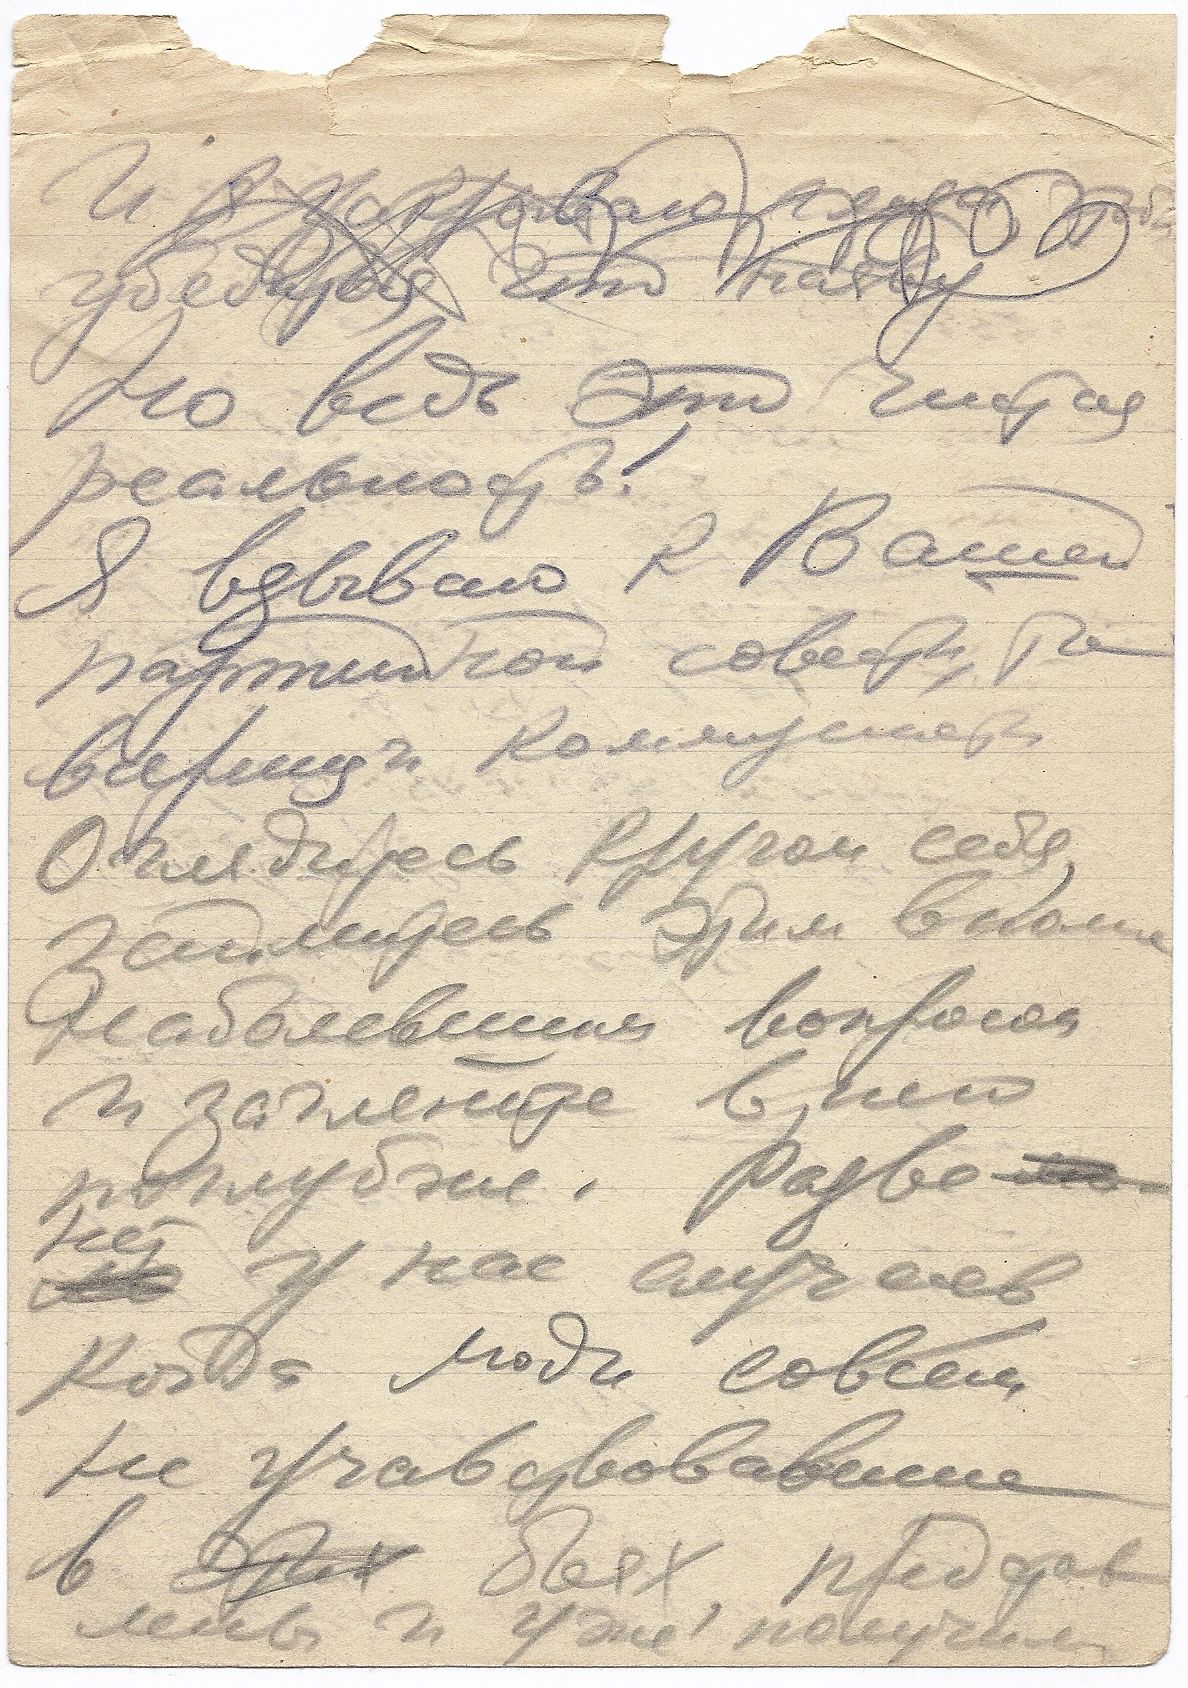 И я
убедиться что наяву
Но ведь это чистая
реальность!
Я взываю к Вашей
партийной совести, то
варищи коммунисты
Оглядитесь кругом себя,
займитесь этим вполне
наболевшим вопросом
и загляните в него
поглубже. Разве
нет у нас случаев
когда люди совсем
не учавствовавшие
в этих боях, представ
лены и уже получили